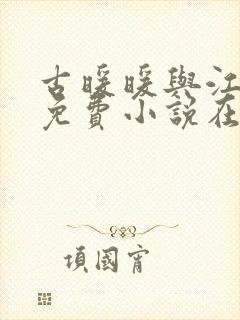 古暖暖與江
免費小說在
項國宵